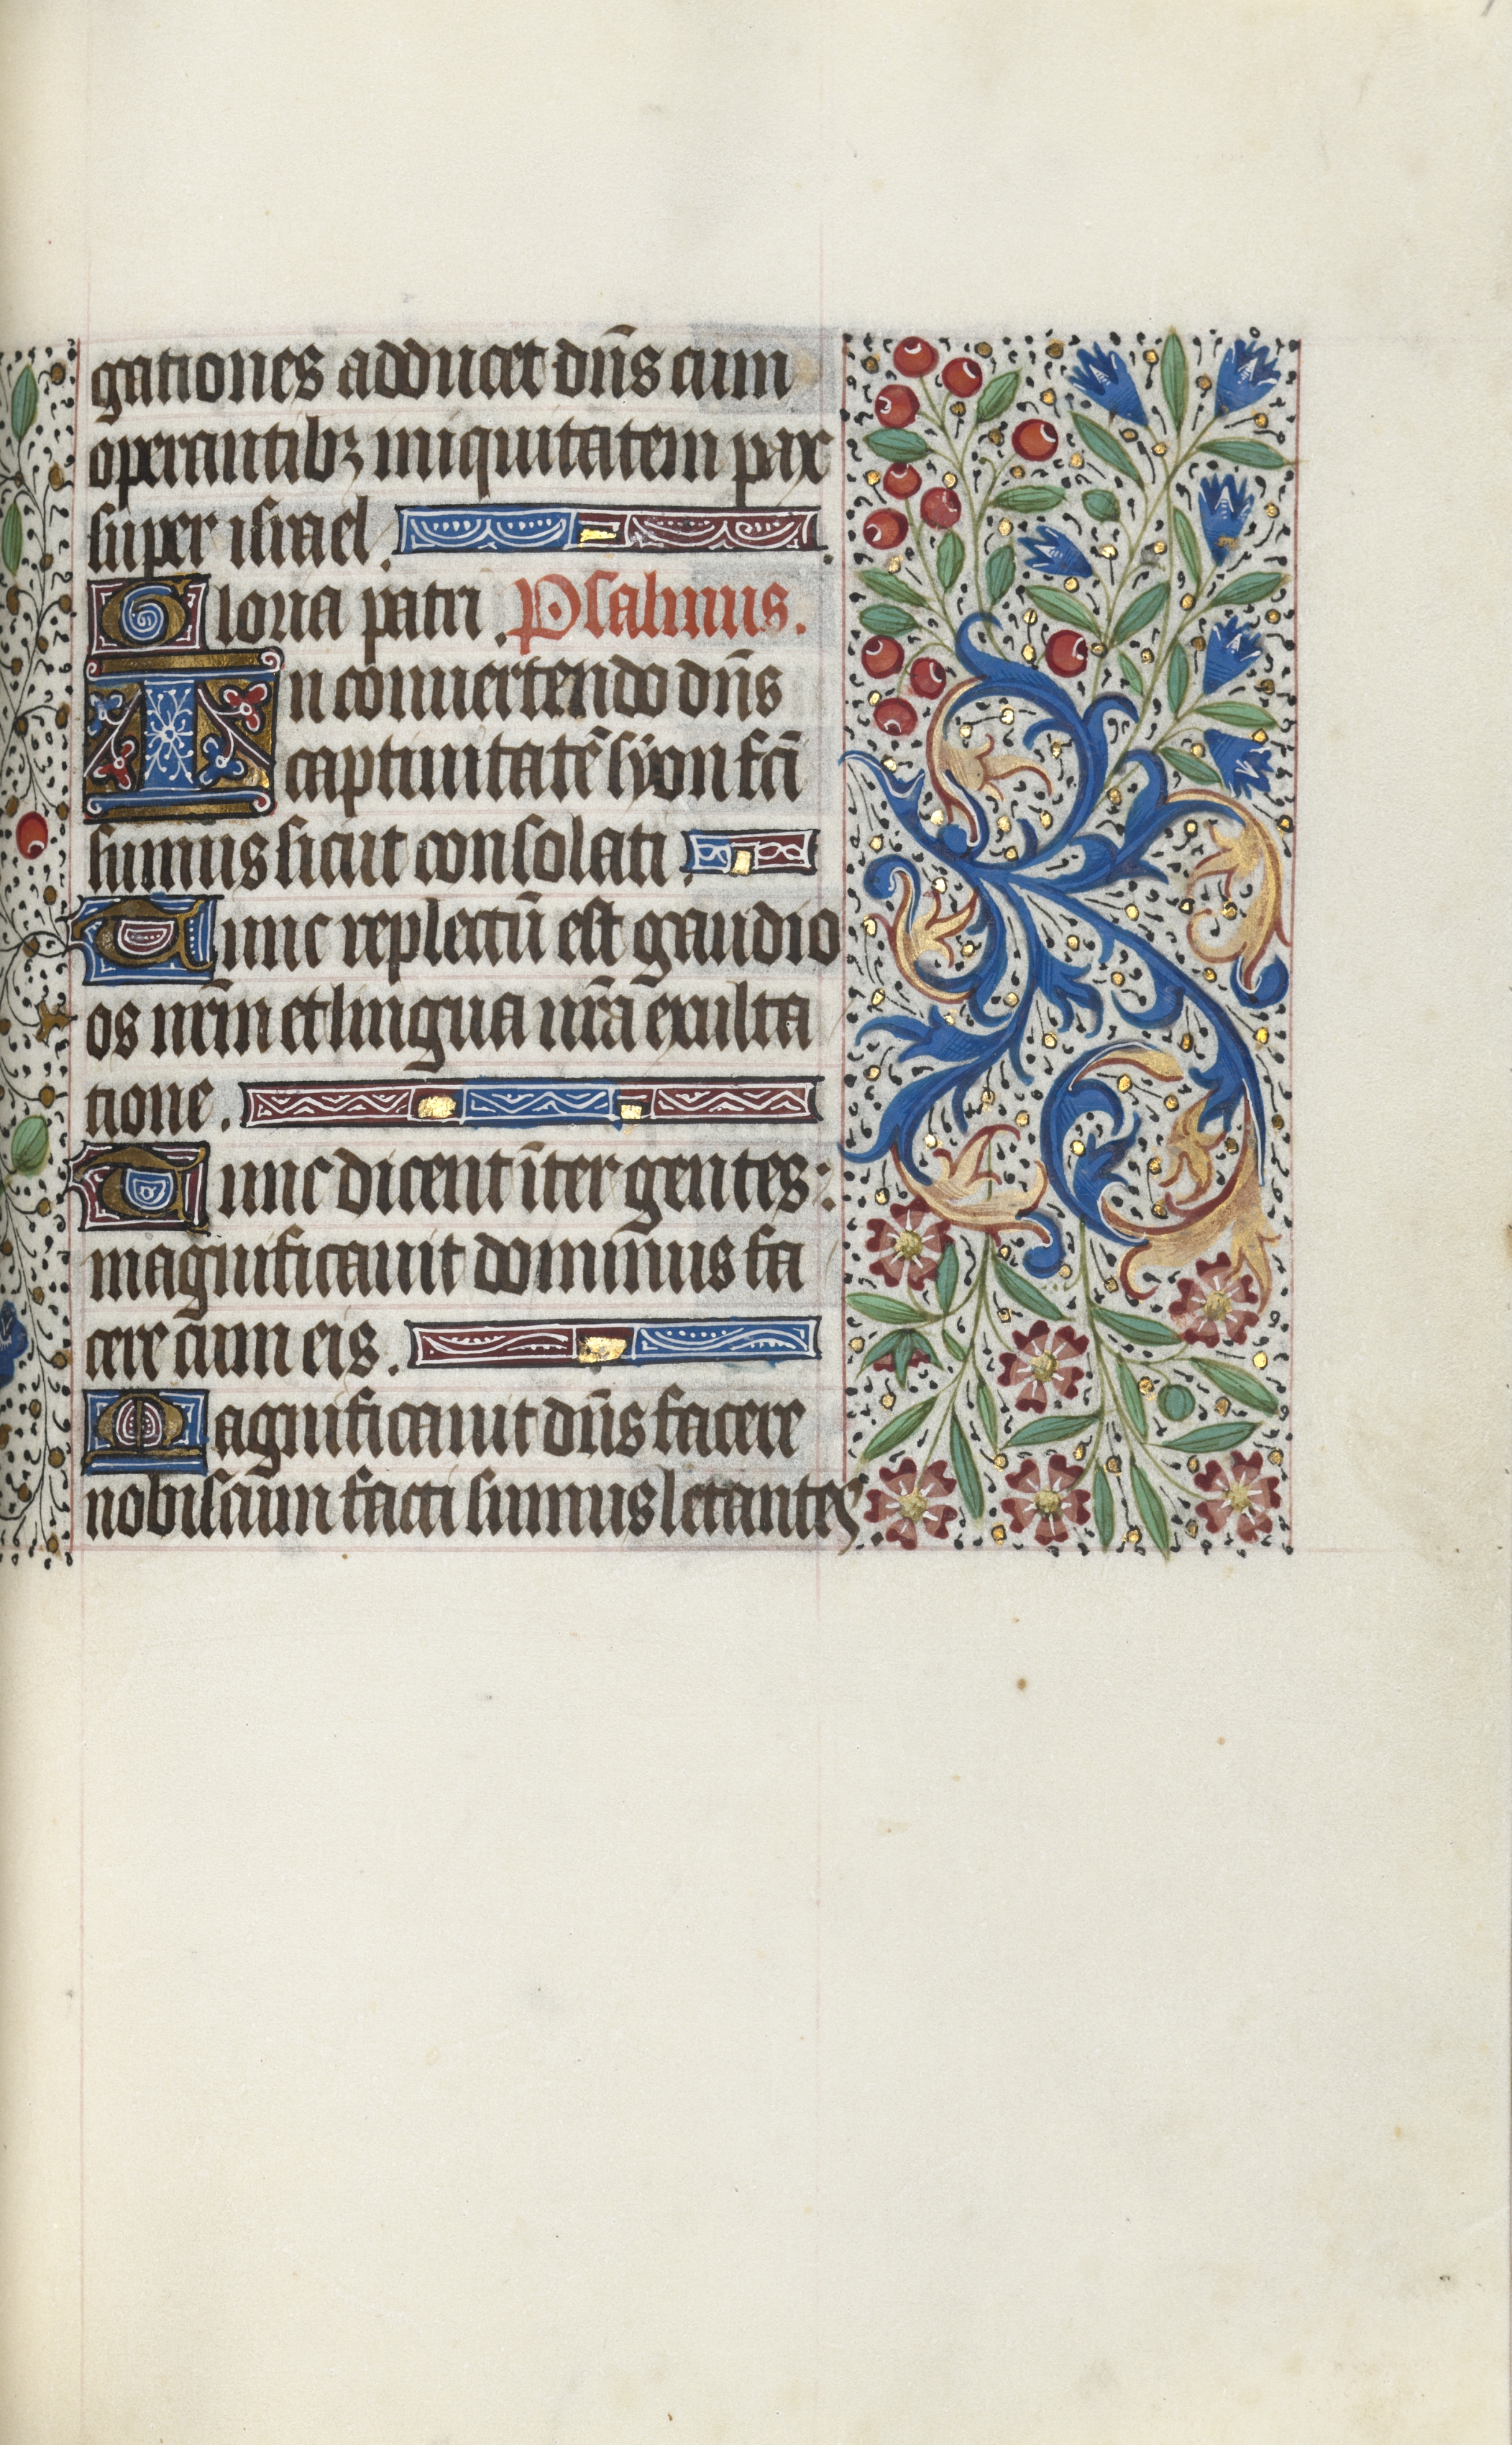 gationes adducet dn̄s cum
operantibꝫ iniquitatem pax
super israel.
Gloria patri. Psalmus.
In conuertendo dn̄s
captiuitatē syon fcī
sumus sicut consolati.
Tunc repletū est gaudio
os nr̄m et lingua nr̄a exulta
tione.
Tunc dicent īter gentes:
magnificauit dominus fa
cere cum eis.
Magnificauit dn̄s facere
nobiscum facti sumus letantes